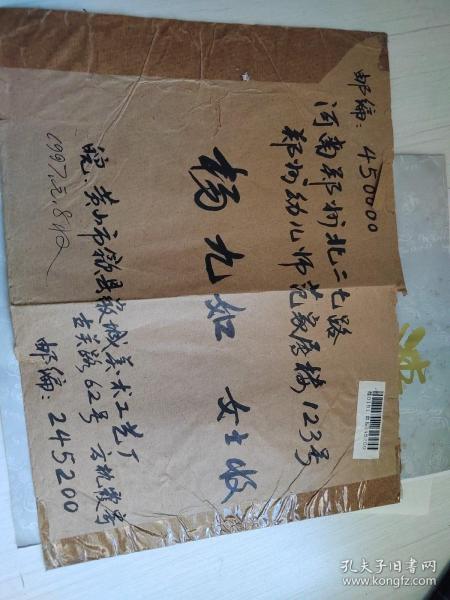 邮编:450000
河南郑州北二七路
郑州幼儿师范家属楼123号
杨九如 女士收
皖.黄山市歙县徽城美术工艺厂
古关路62号 方钦寿寄
邮编:245200
1997.元.8日
孔夫子旧书网
www.kongfz.com